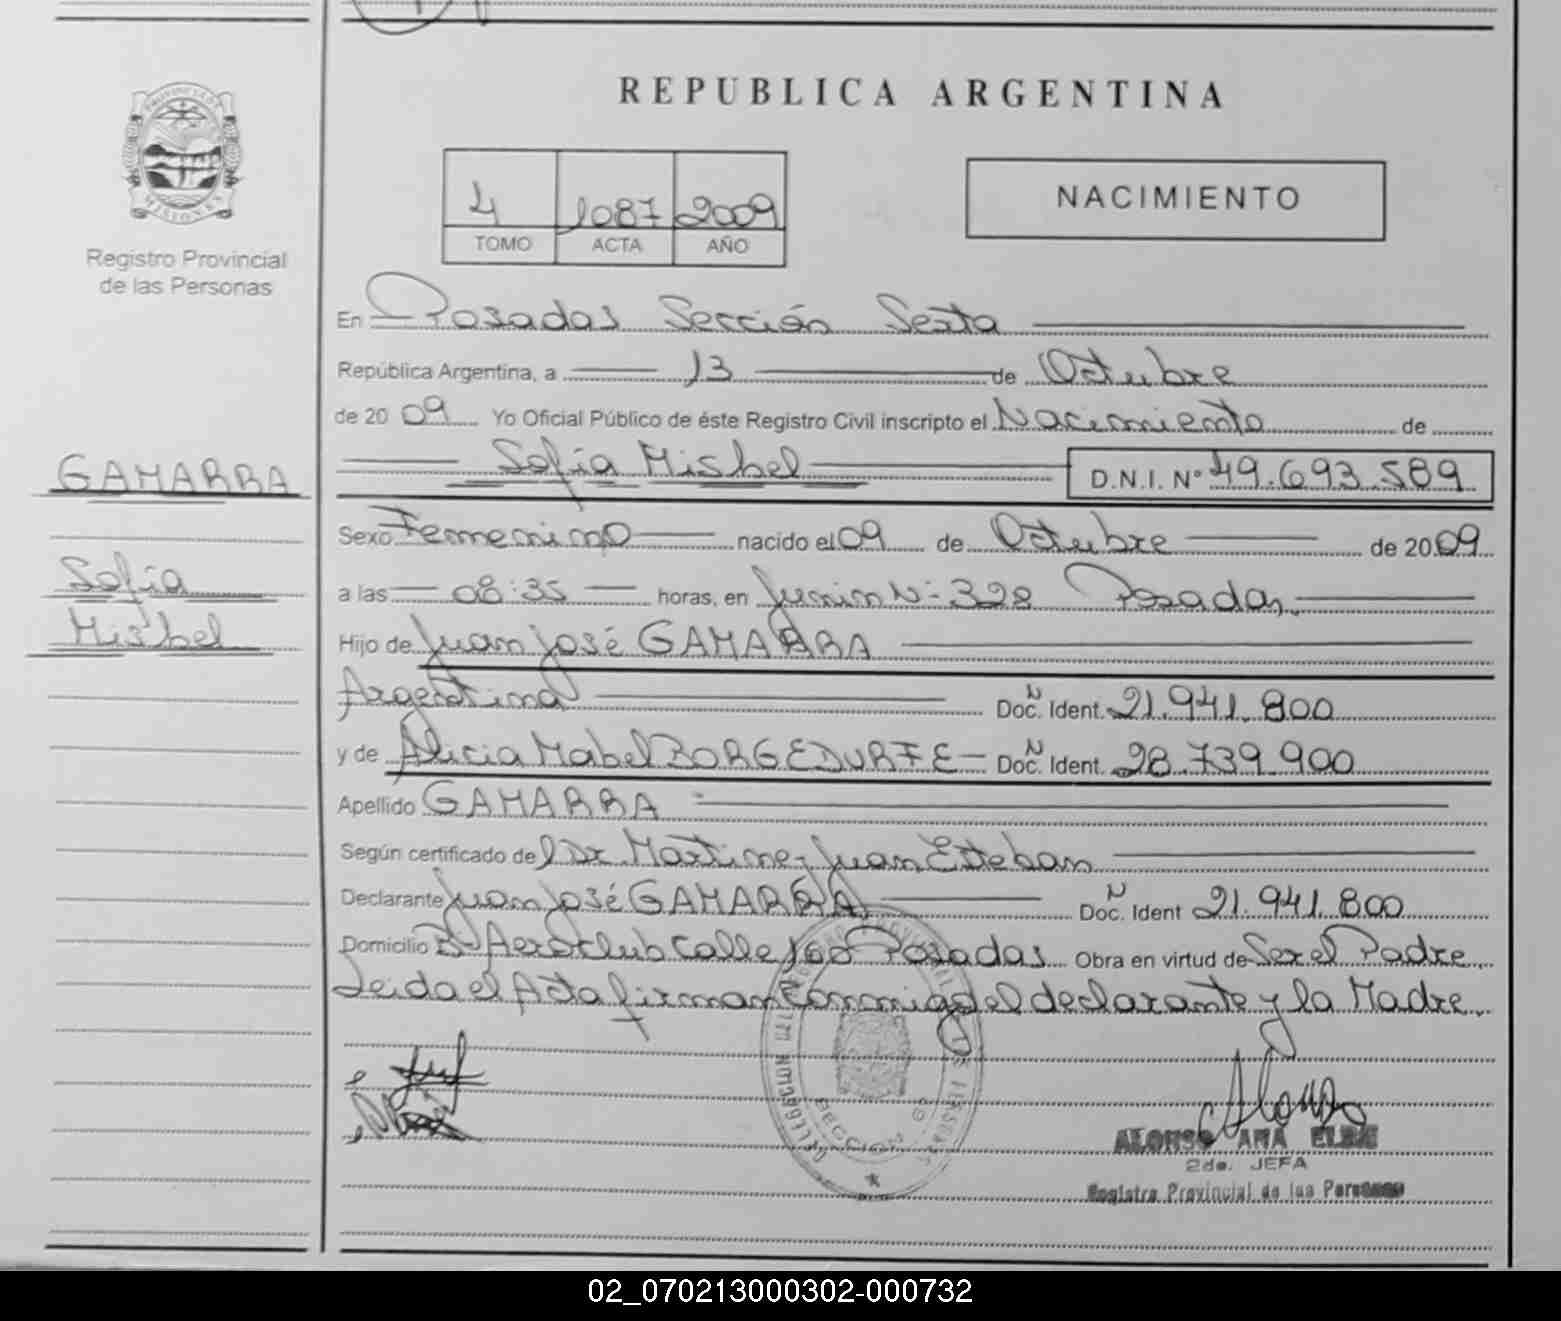 REPUBLICA ARGENTINA
PROVINCIA DE
MISIONES
Registro Provincial
de las Personas
4 1087 2009
TOMO ACTA AÑO
NACIMIENTO
En Posadas Sección Sexta
República Argentina, a 13 de Octubre
de 20 09 Yo Oficial Público de éste Registro Civil inscripto el Nacimiento de
GAMARRA
Sofía Misbel D.N.I. Nº 49.693.589
Sexo Femenino nacido el 09 de Octubre de 20 09
Sofía
a las 08:35 horas, en Junin Nº 328 Posadas.
Misbel
Hijo de Juan José GAMARRA
Argentina Doc. Ident. Nº 21.941.800
y de Alicia Mabel BORGEDURFE Doc. Ident. Nº 28.739.900
Apellido GAMARRA
Según certificado del Dr. Martinez Juan Esteban
Declarante Juan José GAMARRA Doc. Ident Nº 21.941.800
Domicilio Bº Aeroclub Calle Posadas Obra en virtud de Ser el Padre.
Leida el Acta firman Conmigo el declarante y la Madre.
SECCION 6
ALONSO ANA ELBA
2da. JEFA
Registro Provincial de las Personas
02_070213000302-000732